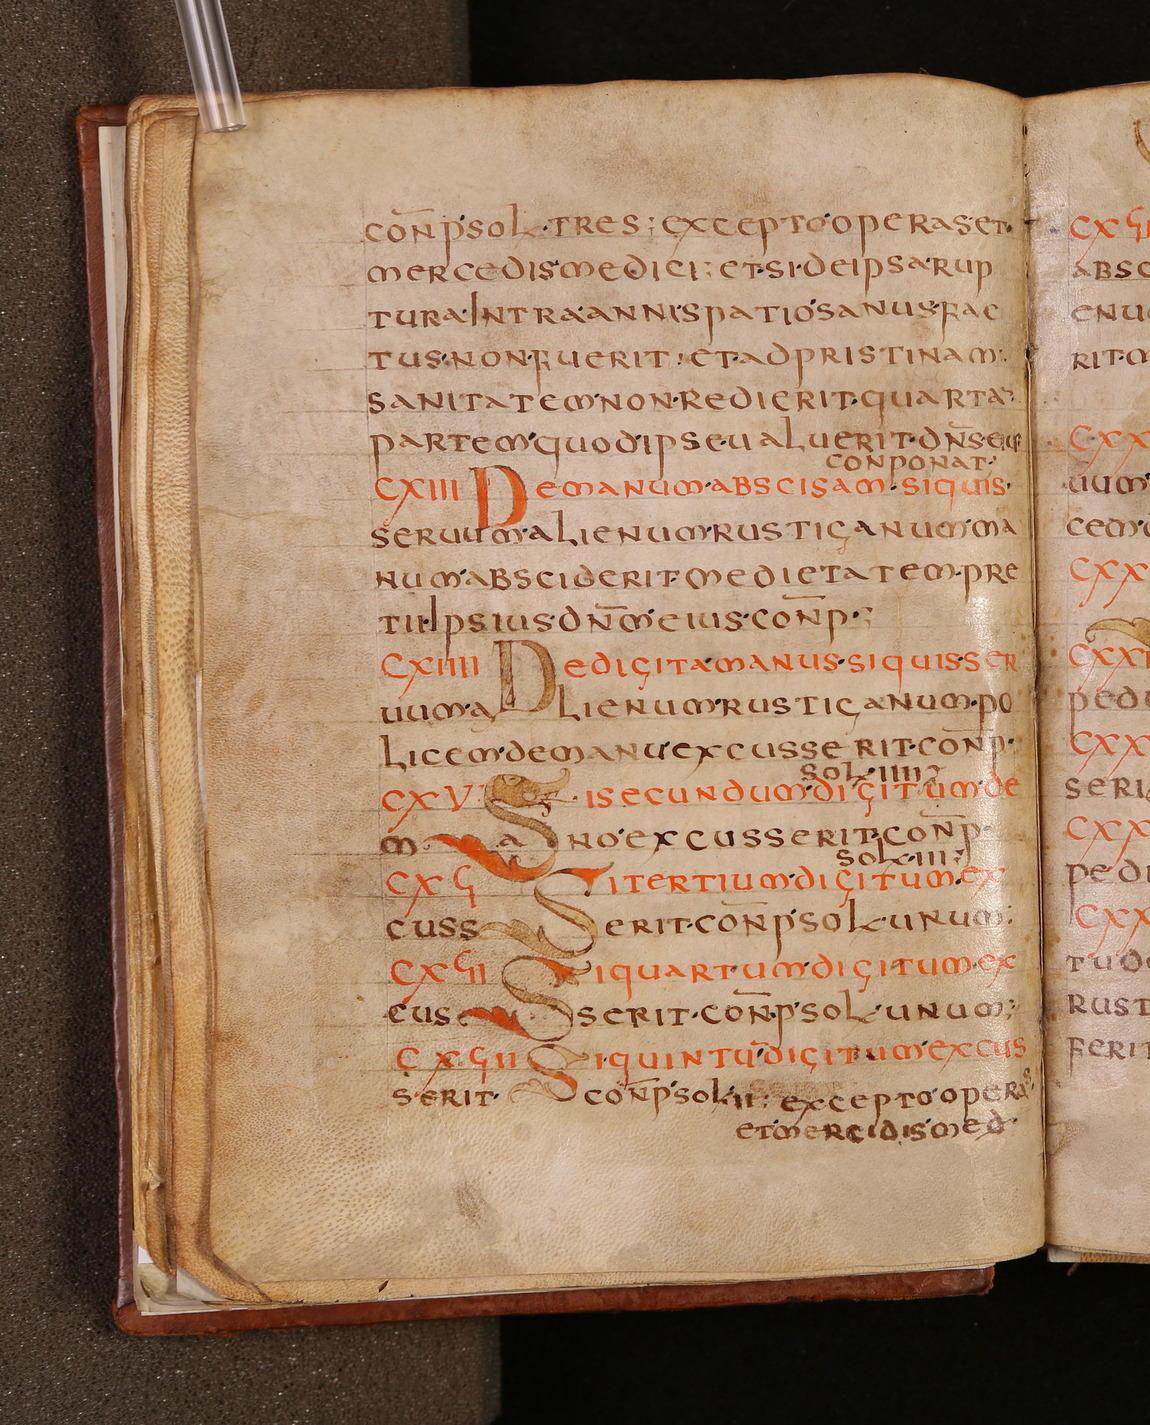 con̄p sol· tres; excepto operas et
mercedis medici; et si de ipsa rup
tura Intra anni spatio sanus fac
tus non fuerit; et ad pristinam
sanitatem non redierit quarta
partem quod ipse ualuerit dn̄s eius
conponat·
CXIII De manum abscisam· si quis·
seruum alienum rusticanum ma
num absciderit medietatem pre
tii Ipsius dn̄m eius con̄p·;
CXIIII De digita manus si quis ser
uum alienum rusticanum po
licem de manu excusserit con̄p·
sol· IIII
CXV Si secundum digitum de
mano excusserit con̄p
sol· III
CXϚ Si tertium digitum ex
cusserit con̄p sol· unum;
CXϚI Si quartum digitum ex
cusserit· con̄p sol· unum;
CXϚII Si quintū digitum excus
serit· con̄p sol· II; excepto operas
et mercidis med
CXϚI
absc
enu
rit
CXX
uum
cem
CXX
CXXI
ped
CXX
seri
CXX
pedi
CXX
tu
rust
ferit